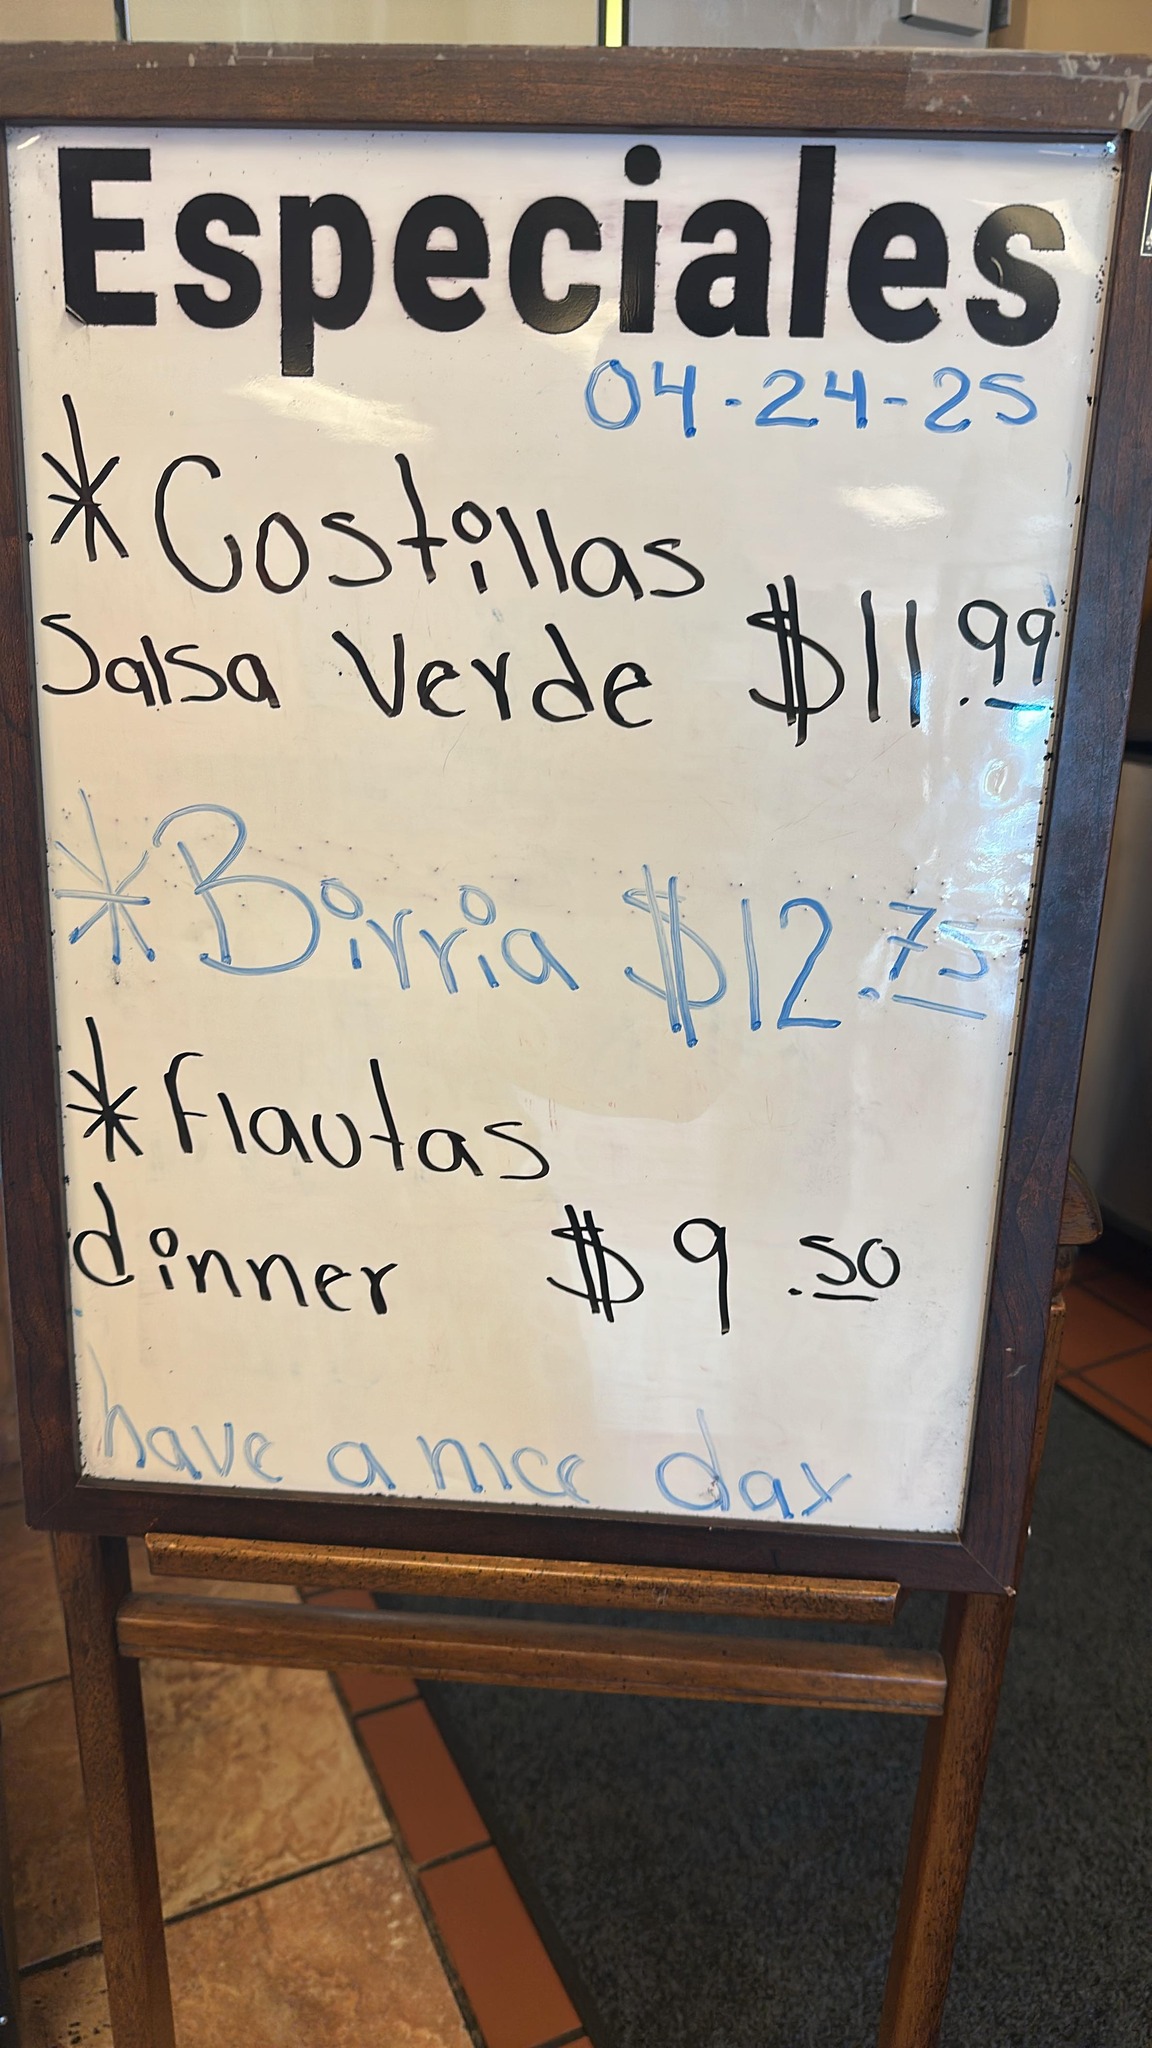 Especiales
04-24-25
*Costillas
Salsa Verde $11.99
*Birria $12.75
*Flautas
dinner $9.50
have a nice day